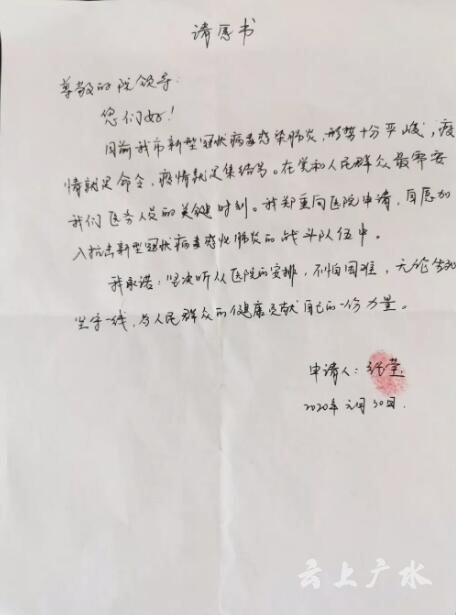 请愿书
尊敬的院领导:
您们好!
目前我市新型冠状病毒感染肺炎,形势十分严峻,疫
情就是命令,疫情就是集结号。在党和人民群众最需要
我们医务人员的关键时刻。我郑重向医院申请,自愿加
入抗击新型冠状病毒感化肺炎的战斗队伍中。
我承诺:坚决听从医院的安排,不怕困难,无论
坚守一线,为人民群众的健康贡献自己的一份力量。
申请人:张莹
2020年元月30日.
云上广水